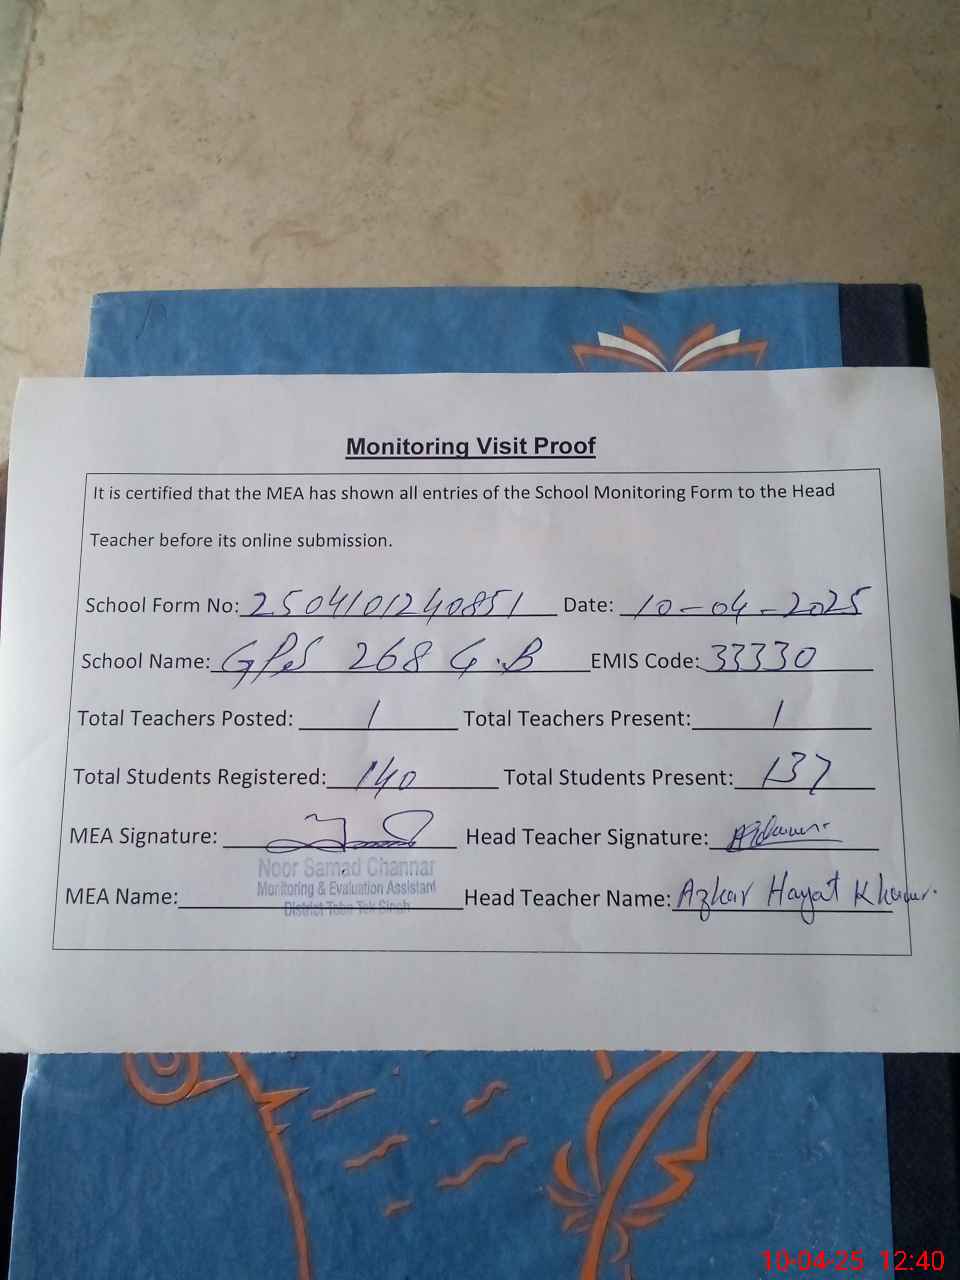 Monitoring Visit Proof
It is certified that the MEA has shown all entries of the School Monitoring Form to the Head
Teacher before its online submission.
School Form No: 2504101240851 Date: 10-04-2025
School Name: GPS 268 G.B EMIS Code: 33330
Total Teachers Posted: 1 Total Teachers Present: 1
Total Students Registered: 140 Total Students Present: 137
MEA Signature: Head Teacher Signature:
Noor Samad Channar
Monitoring & Evaluation Assistant
MEA Name: Head Teacher Name: Azhar Hayat
District Toba Tek Singh
10-04-25 12:40